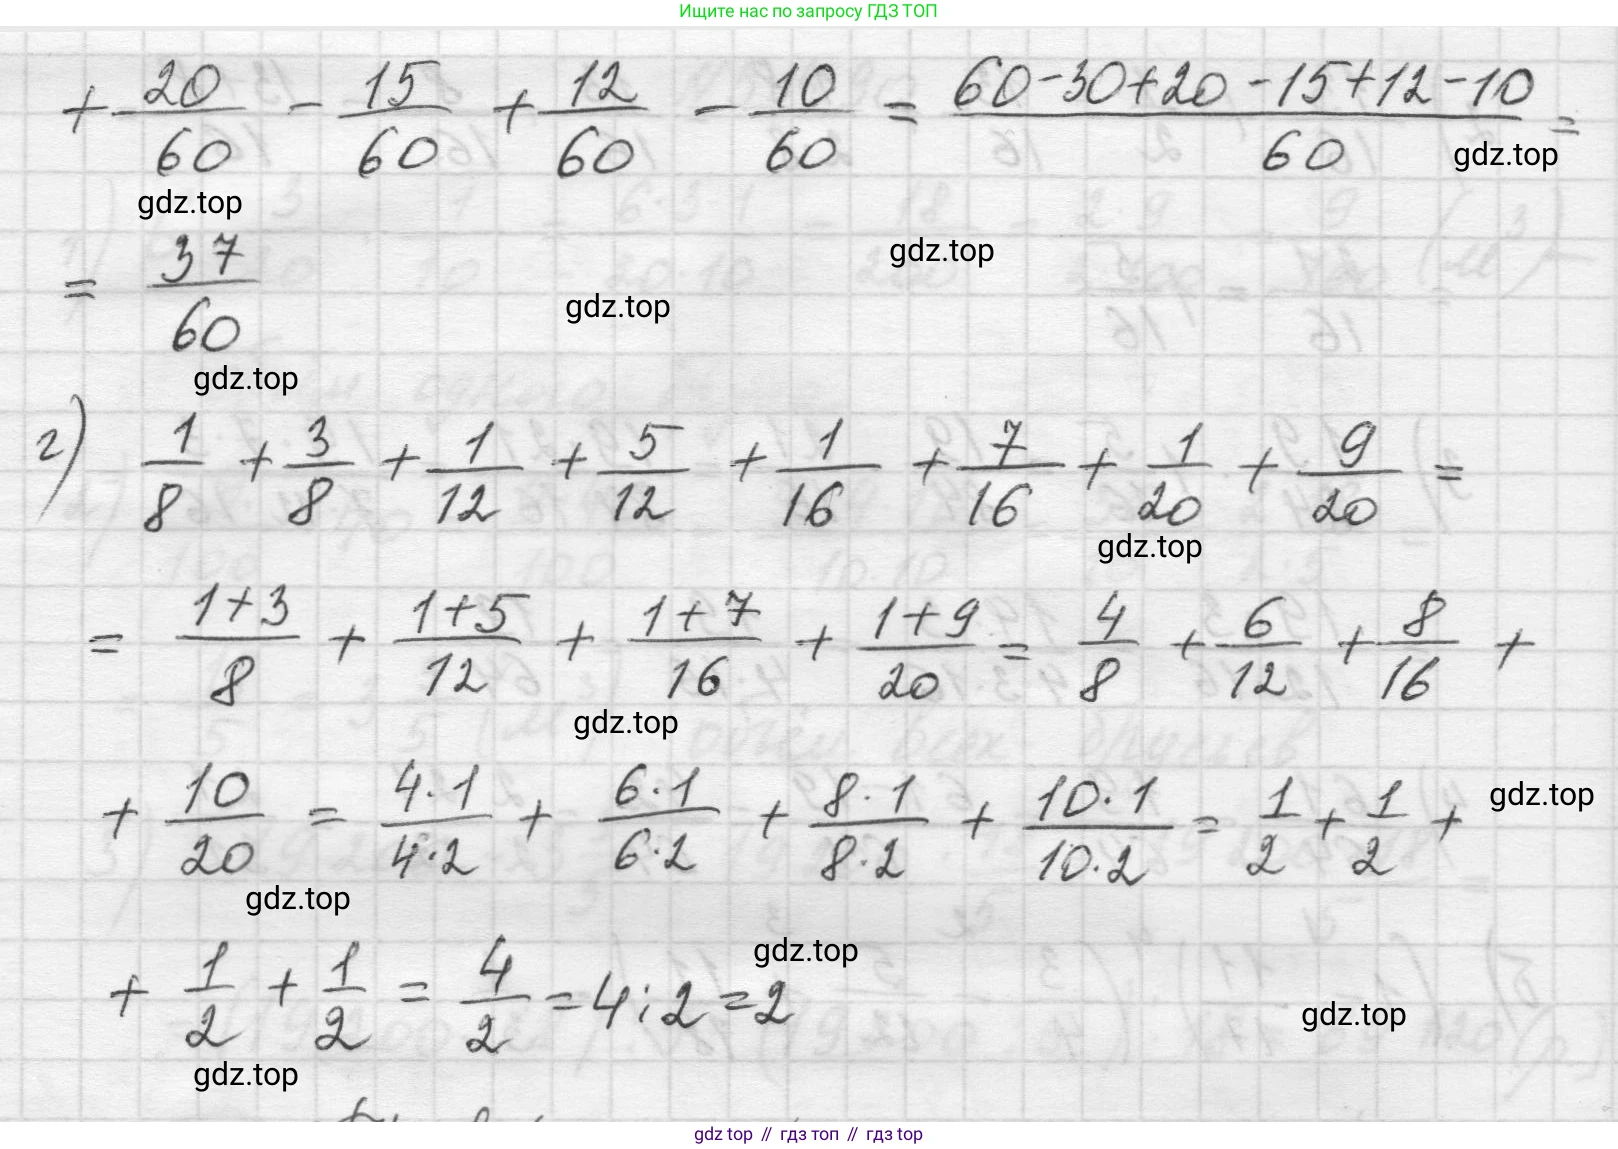 Ищите нас по запросу ГДЗ ТОП
+ 20/60 − 15/60 + 12/60 − 10/60 = (60−30+20−15+12−10)/60 =
gdz.top
gdz.top
= 37/60
gdz.top
gdz.top
gdz.top
г) 1/8 + 3/8 + 1/12 + 5/12 + 1/16 + 7/16 + 1/20 + 9/20 =
gdz.top
= (1+3)/8 + (1+5)/12 + (1+7)/16 + (1+9)/20 = 4/8 + 6/12 + 8/16 +
gdz.top
+ 10/20 = (4·1)/(4·2) + (6·1)/(6·2) + (8·1)/(8·2) + (10·1)/(10·2) = 1/2 + 1/2 +
gdz.top
gdz.top
+ 1/2 + 1/2 = 4/2 = 4:2 = 2
gdz.top
gdz.top
gdz.top
gdz top // гдз топ // гдз top